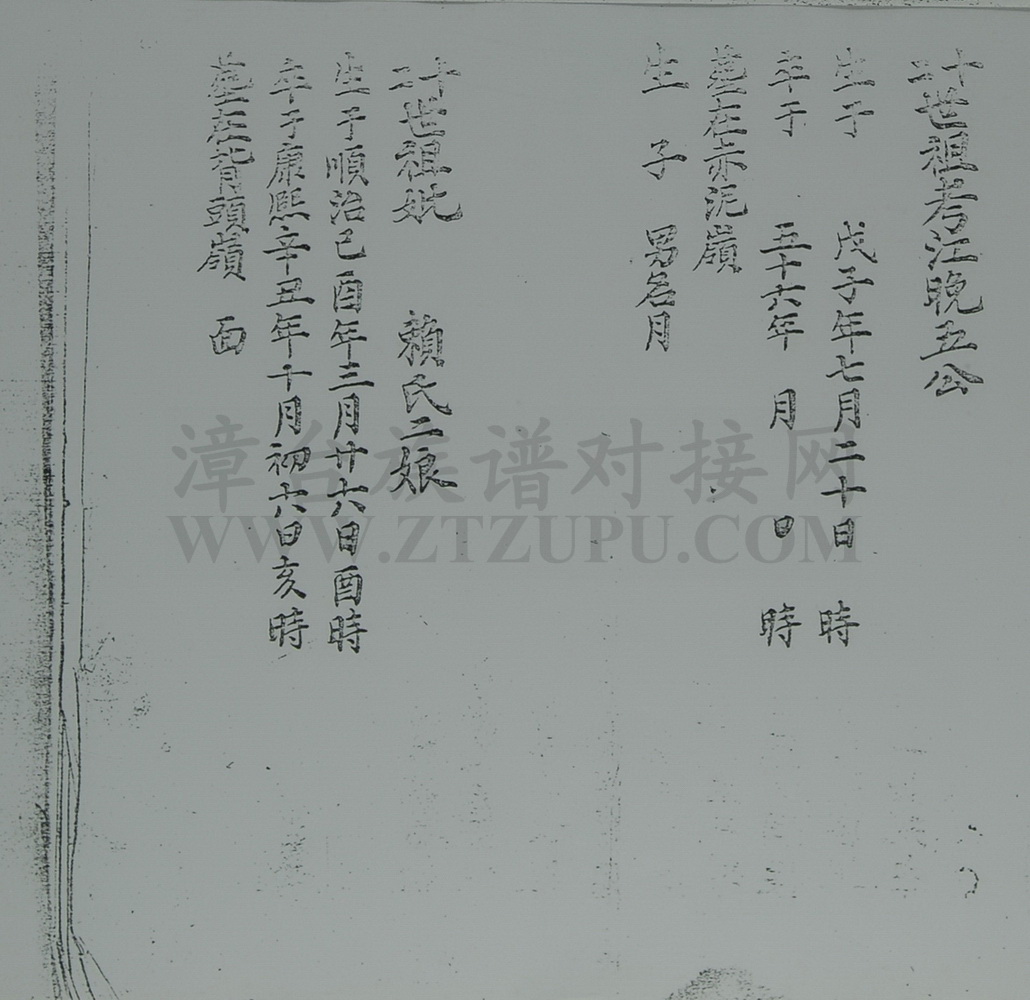 十二世祖考江晚五公
生于 戊子年七月二十日 時
卒于 五十六年 月 日 時
墓在赤泥嶺
生 子 男名月
十二世祖妣 賴氏二娘
生于順治己酉年三月廿六日酉時
卒于康熙辛丑年十月初六日亥時
墓在背頭嶺 面
漳台族谱对接网
WWW.ZTZUPU.COM